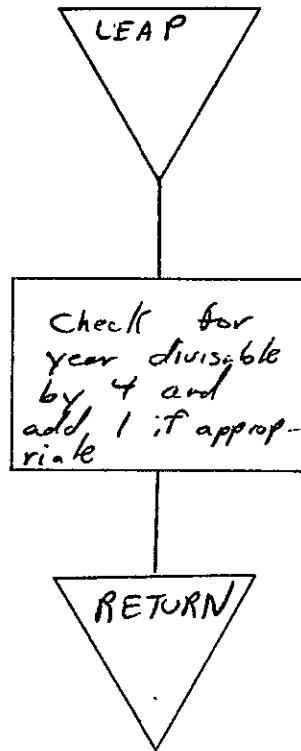 LEAP
Check for
year divisable
by 4 and
add 1 if approp-
riate
RETURN